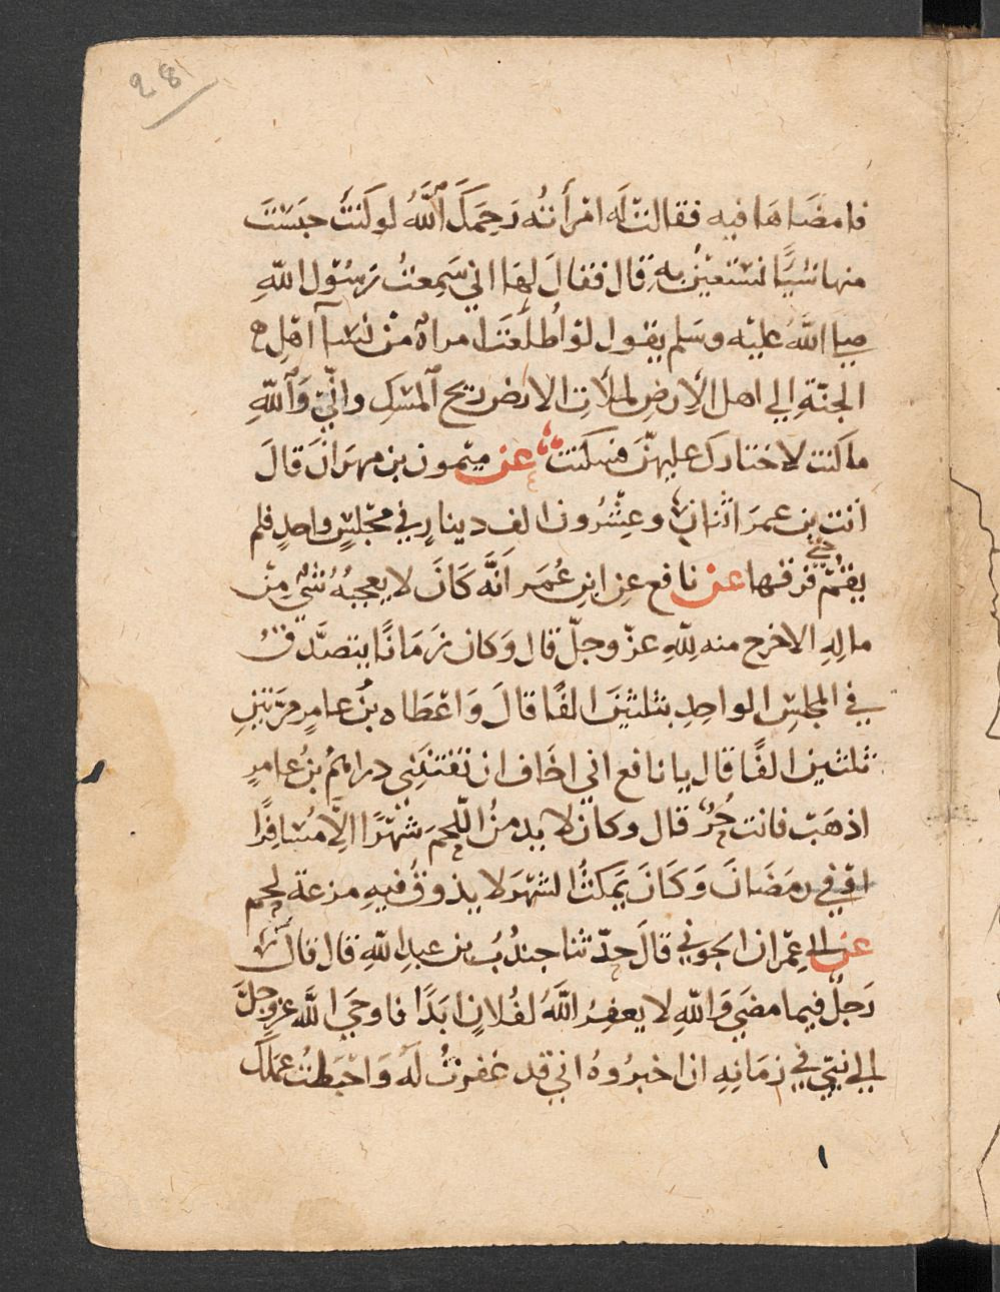 28
فامضَاهَا فيه فقالت لَه امْرأتُه رَحِمَكَ ٱللَّهُ لوكنتُ حبَسْتَ
منها شيًّا نسْتَعيْنُ بهِ قال فقالَ لهَا اني سَمِعتُ رَسُوْل اللّهِ
صلى اللَّهُ عليْه وسَلم يقول لوْ اُطلَعَت امراة منْ نسآ اهْلِ
الجنّةِ الي اهل الارضِ لملأتِ الارضَ ريح ٱلمسْكِ وانّي وَٱللّهِ
ما كنت لاختارك عليهنَّ فسكتت عن ميْمون بن مهرَانَ قالَ
اتت بن عمرَ اثنان وعِشْرُون الف دينارٍ في مجْلسٍ واحدٍ فلم
يقمْ حتي فرقها عن نافع عن ابنِ عُمَر انَّه كَانَ لا يعجبُهُ شيْ مِنْ
مالهِ الا خرج منه لِلّهِ عزّ وجلّ قال وَكان زمَانًا يتصَّدقُ
في المجلسِ الواحِدِ بثلثيْنَ الفًا قالَ وَاعْطَاه بْنُ عامرٍ مرّتيْنِ
ثلثين الفًا قال يا نافع اني اخَاف ان تفْتنَنِي دراهمُ بنُ عامرٍ
اذهَبْ فانت حُرٌّ قال وكان لا يدمنُ اللّحمَ شهْرًا الّا مُسَافرًا
او في رمَضَانَ وَكَانَ يَمكثُ الشهْرَ لا يذوقُ فيهِ مزعة لحم
عن ابي عِمْران الجوني قالَ حدّثنا جندُبُ بن عبدِ اللّهِ قال قالَ
رَجلٌ فيما مضَي وَاللّهِ لا يعفِرُ اللَّهُ لفُلانٍ ابَدًا فاوحَي اللّه عزوجلَّ
الي نبيّ في زمَانِهِ ان اخبرُوهُ اني قد غفرتُ لَهُ وَاحْبَطتُ عمَلكَ